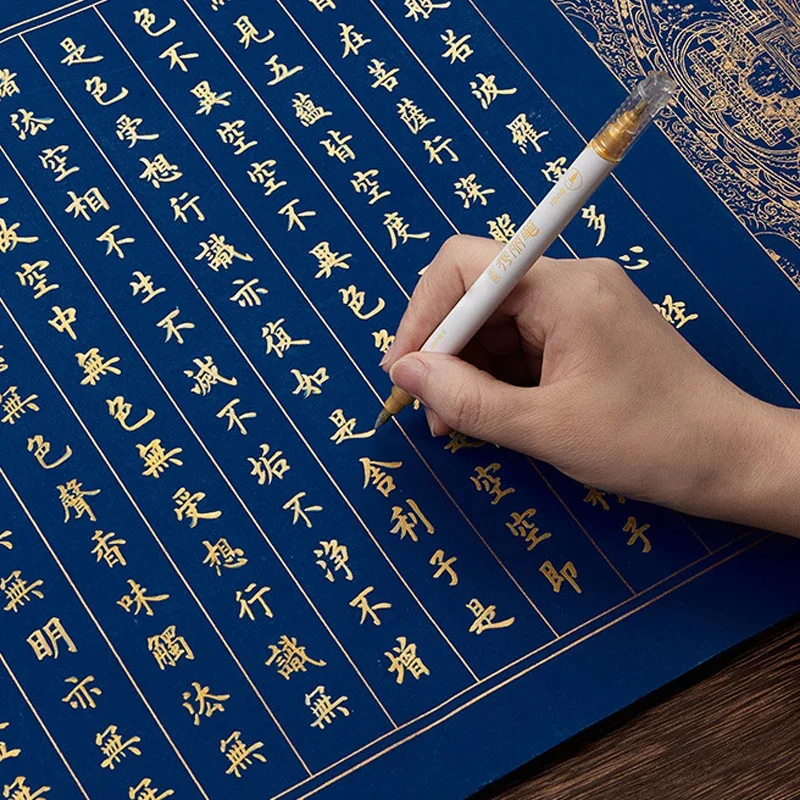 般若波羅蜜多心經
在菩薩行深般
見五蘊皆空度利子
色不異空空不異色色是空空即
是色受想行識亦復如是舍利子是
諸法空相不生不滅不垢不淨不增
故空中無色無受想行識無
無色聲香味觸法無
無明亦無無
無
秀丽笔